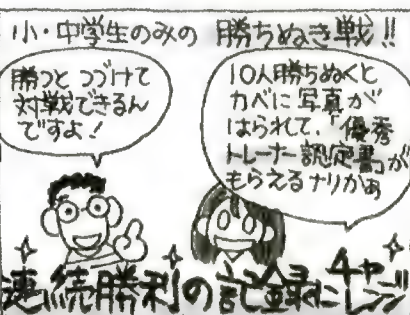 小・中学生のみの 勝ちぬき戦!!
勝つと つづけて
対戦できるん
ですよ!
10人勝ちぬくと
カベに写真が
はられて、「優秀
トレーナー認定書」が
もらえるナリかぁ
連続勝利の記録にチャレンジ